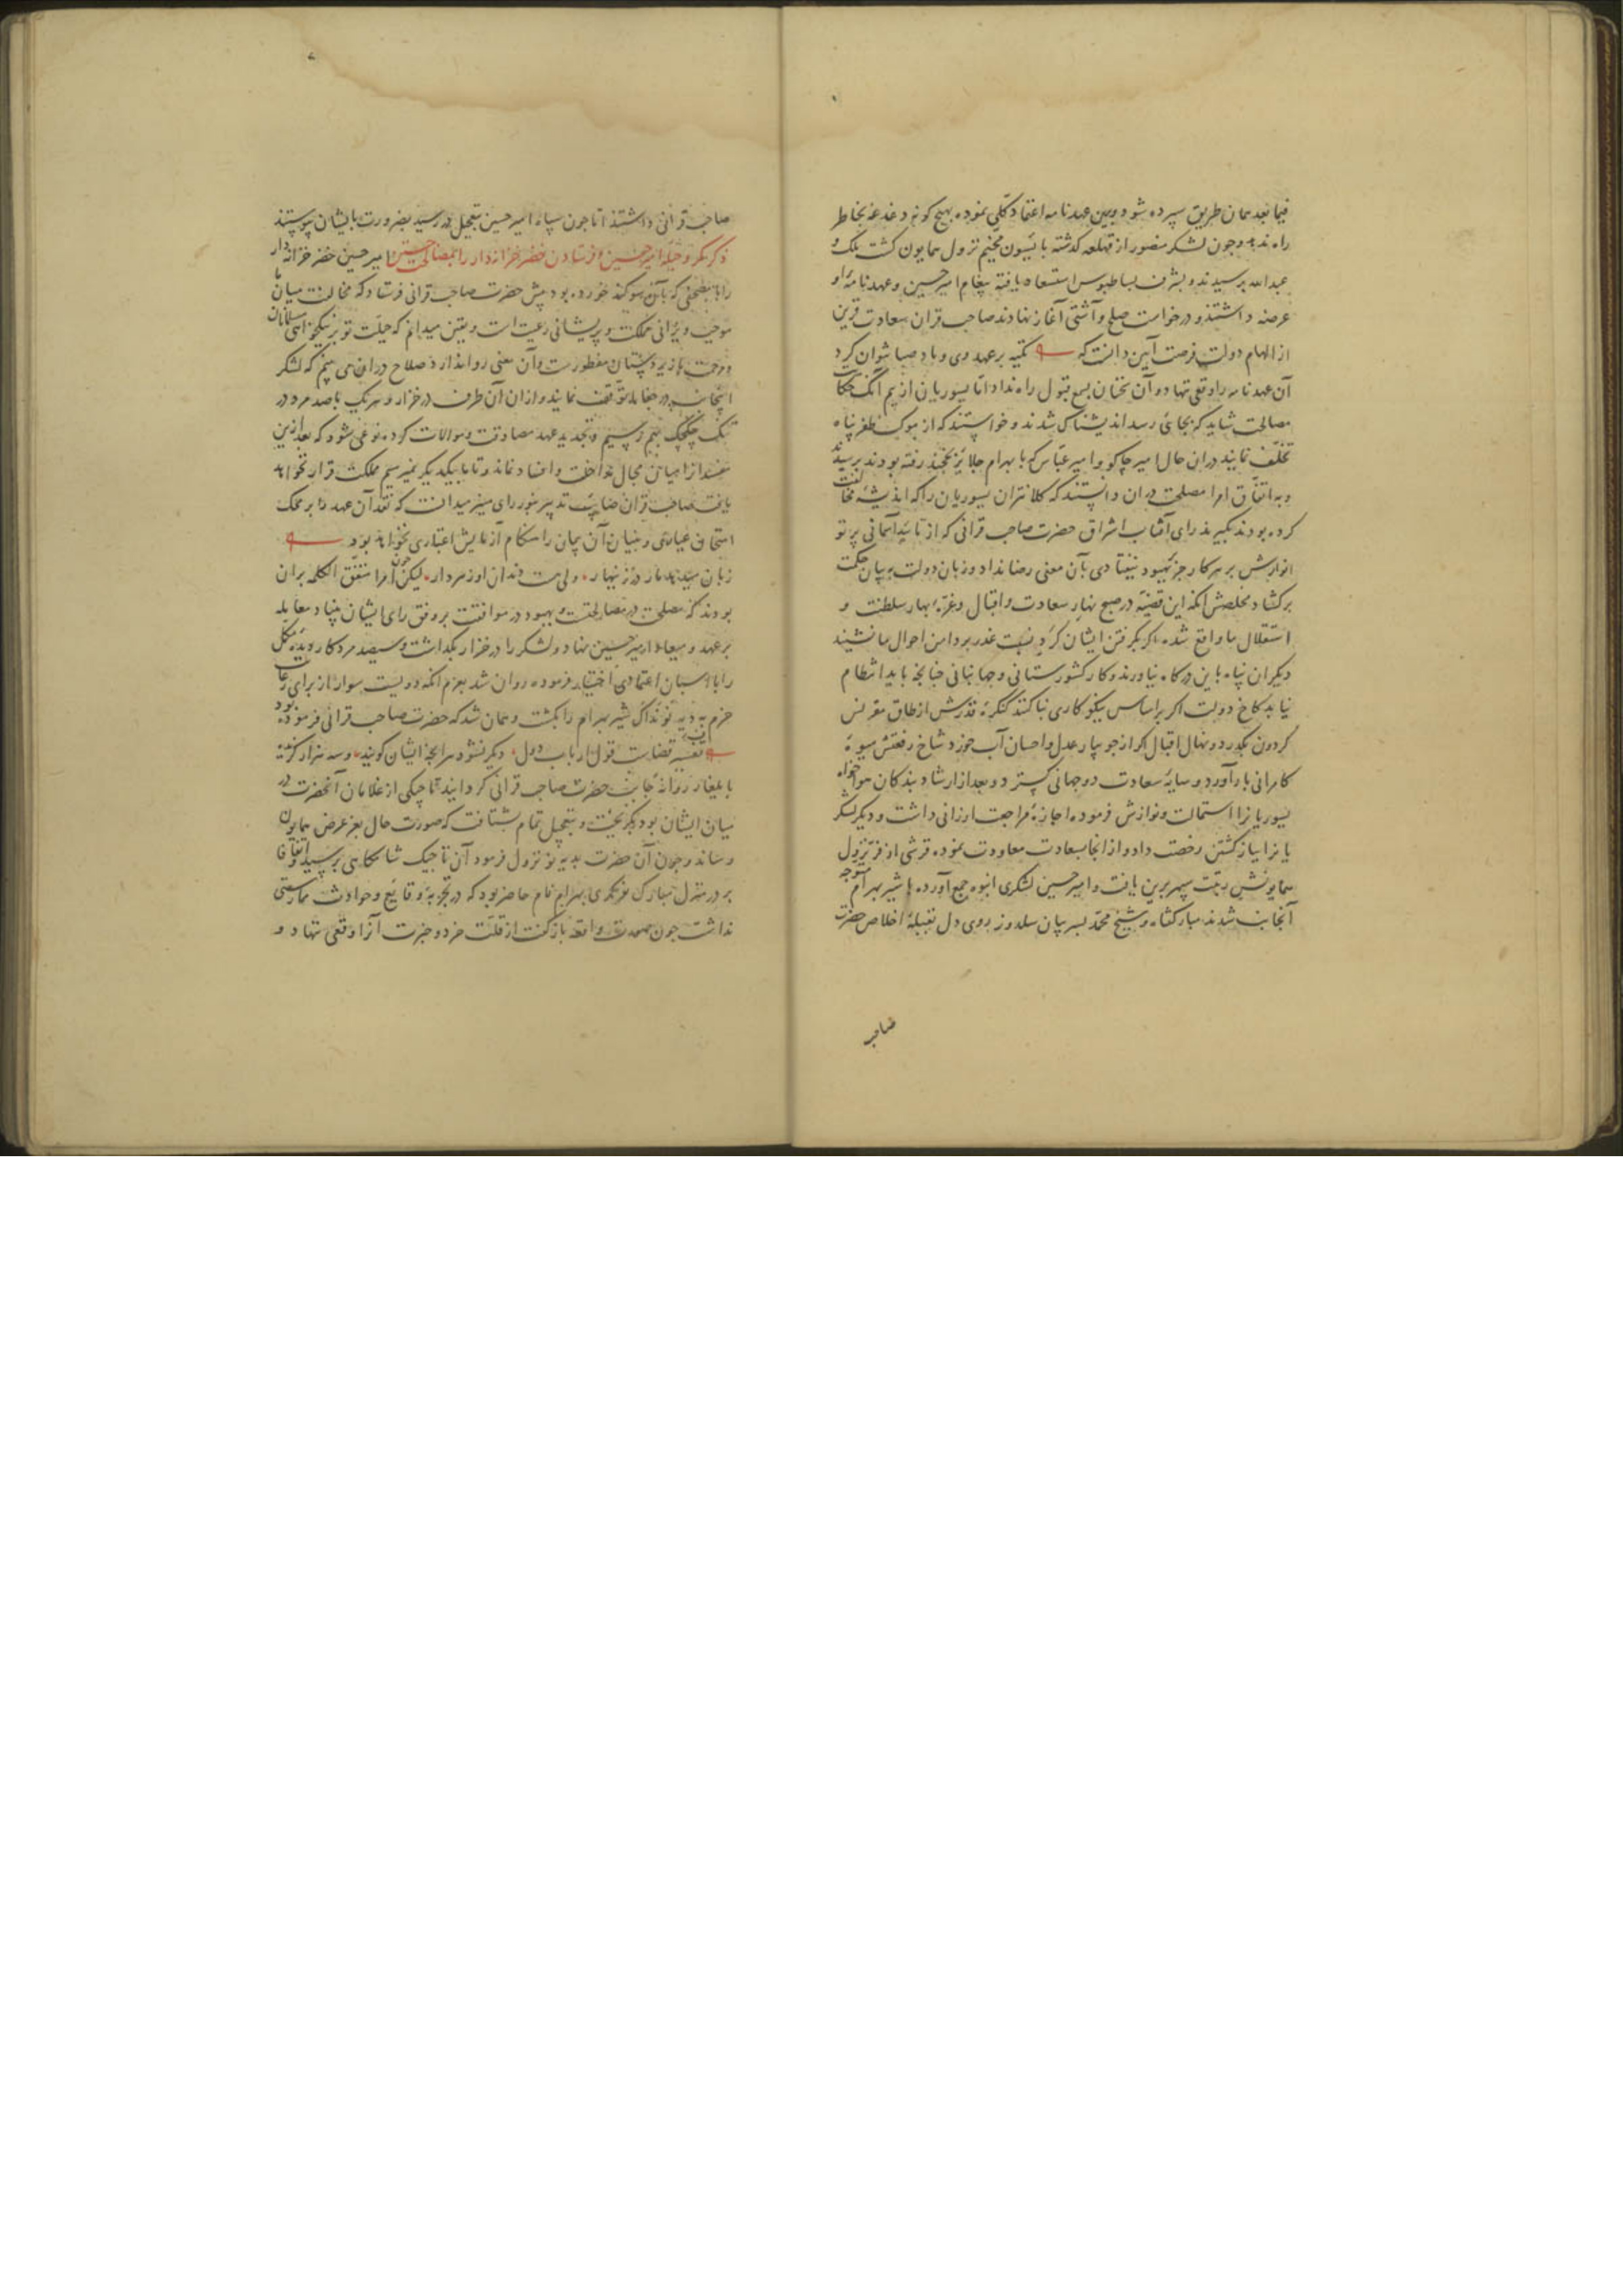 فیما بعد همان طریق سپرده شود و برین عهدنامه اعتماد کلی نموده بهیچ کونه دغدغه بخاطر
راه ندهد و چون لشکر منصور از قهلغه کذشته بایسون مخیم نزول همایون کشت ملک و
عبدالله برسیدند و بشرف بساطبوس استسعاد یافته پیغام امیر حسین و عهدنامهٔ او
عرضه داشتند و درخواست صلح و آشتی آغاز نهادند صاحب قران سعادت قرین
از الهام دولت فرصت آیین دانست که تکیه بر عهد وی و باد صبا نتوان کرد
آن عهدنامه را وقعی ننهاد و آن سخنان بسمع قبول راه نداد اما یسوریان از بیم آنک حکایت
مصالحت شاید که بجائی رسد اندیشناک شدند و خواستند که از موکب ظفر پناه
تخلف نمایند دران حال امیر جاکو و امیر عباس که با بهرام جلایر بخجند رفته بودند برسیدند
و به اتفاق امرا مصلحت دران دانستند که کلانتران یسوریان را که اندیشهٔ مخالفت
کرده بودند بکیرند رای آفتاب اشراق حضرت صاحب قرانی که از تایید آسمانی پرتو
انوارش بر هر کار جز ببهبود نیفتادی بآن معنی رضا نداد و زبان دولت به بیان حکمت
برکشاد مخلصش آنکه این قضیه در صبح نهار سعادت و اقبال و غرهٔ بهار سلطنت و
استقلال ما واقع شده اکر بکرفتن ایشان کرد نسبت غدر بر دامن احوال ما نشیند
دیکران پناه باین درکاه نیاورند و کار کشورستانی و جهانبانی چنانچه باید انتظام
نیابد کاخ دولت اکر بر اساس نیکوکاری بنا کنند کنکرهٔ قدرش از طاق مقرنس
کردون بکذرد و نهال اقبال اکر از جویبار عدل و احسان آب خورد شاخ رفعتش میوهٔ
کامرانی بار آورد و سایهٔ سعادت دو جهانی کسترد و بعد از ارشاد بندکان هواخواه
یسوریانرا استمالت و نوازش فرموده اجازهٔ مراجعت ارزانی داشت و دیکر لشکر
یانرا بباز کشتن رخصت داد و از انجا بسعادت معاودت نموده قرشی از فر نزول
همایونش رتبت سپهر برین یافت و امیر حسین لشکری انبوه جمع آورده با شیر بهرام متوجه
آنجانب شدند مبارکشاه و شیخ محمد پسر بیان سلدوز بروی دل بقبلهٔ اخلاص حضرت
صاحب
صاحب قرانی داشتند اما چون سپاه امیر حسین بتعجیل در رسید بضرورت بایشان پیوستند
ذکر مکر و حیلهٔ امیر حسین و فرستادن خضر خزانه دار را بمصالحت امیر حسین خضر خزانه دار
را با مصحفی که بآن سوکند خورده بود پیش حضرت صاحب قرانی فرستاد که مخالفت میان ما
موجب ویرانی مملکت و پریشانی رعیت است و یقین میدانم که جبلت تو بر نیکخواهی مسلمانان
و مرحمت بازیردستان مفطورست و آن معنی روا ندارد صلاح دران می بینم که لشکر
این جانب در چغانیان توقف نمایند و ازان آن طرف در خزار و هر یک با صد مرد در
تنک چکچک بهم رسیم و تجدید عهد مصادقت و موالات کرده نوعی شود که بعد ازین
مفسدان را میان مجال مداخلت و افساد نماند و تا با یکدیکر نمیرسیم مملکت قرار نخواهد
یافت صاحب قران صایب تدبیر بنور رای منیر میدانست که نقد آن عهد را بر محک
امتحان عیاری و بنیان آن پیمان را هنکام آزمایش اعتباری نخواهد بود
زبان میدهد مار در زینهار ولی هست دندان او زهردار لیکن چون امرا متفق الکلمه بران
بودند که مصلحت در مصالحتست و بهبود در موافقت بر وفق رای ایشان بنیاد معامله
بر عهد و میعاد امیر حسین نهاد و لشکر را در خزار بکذاشت و سیصد مرد کار دیده مکمل
را با اسبان اعتمادی اختیار فرموده روان شد بعزم آنکه دویست سوار از برای رعایت
حزم بدیه نو نداک شیر بهرام را بکشت و همان شد که حضرت صاحب قرانی فرموده بود
تفسیر قضاست قول ارباب دول دیکر نشود هر آنچه ایشان کویند و سه هزار کزیده
بایلغار روانهٔ جانب حضرت صاحب قرانی کردانید تاجیکی از غلامان آنحضرت در
میان ایشان بود بکریخت و بتعجیل تمام بشتافت که صورت حال بعز عرض همایون
رساند و چون آن حضرت بدیه نو نزول فرمود آن تاجیک شامکاهی برسید و اتفاقا
بر در منزل مبارک نوکری بهرام نام حاضر بود که در تجربهٔ وقایع و حوادث ممارستی
نداشت چون صورت واقعه باز کفت از قلت خرد و خبرت آنرا وقعی ننهاد و